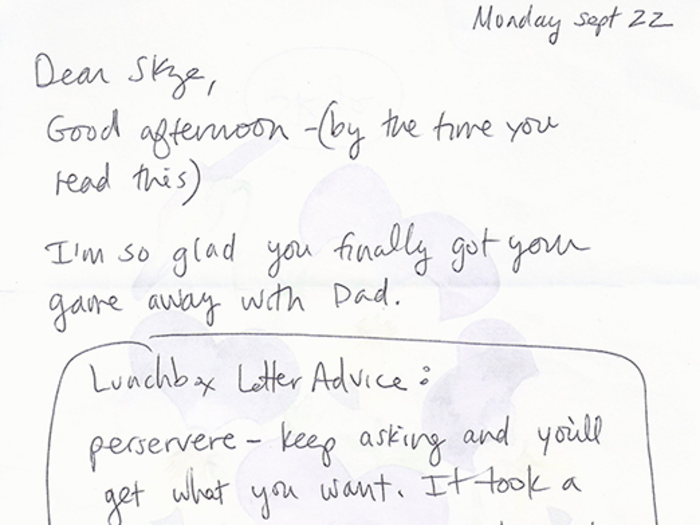 Monday sept 22
Dear Skye,
Good afternoon - (by the time you
read this)
I'm so glad you finally got your
game away with Dad.
Lunchbox Letter Advice:
perservere - keep asking and you'll
get what you want. It took a